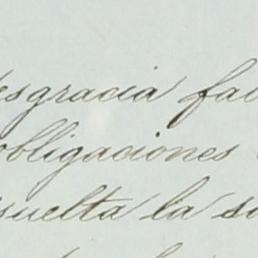 desgracia fal
obligaciones
suelta la so